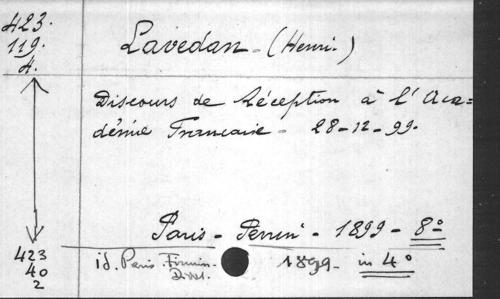 423.
119.
4.
Lavedan - (Henri.)
Discours de Réception à l'Aca=
démie Française - 28-12-99.
Paris - Perrin - 1899 - 8º
423
40
2
id. Paris Firmin-
Didot.
1899 - in 4º